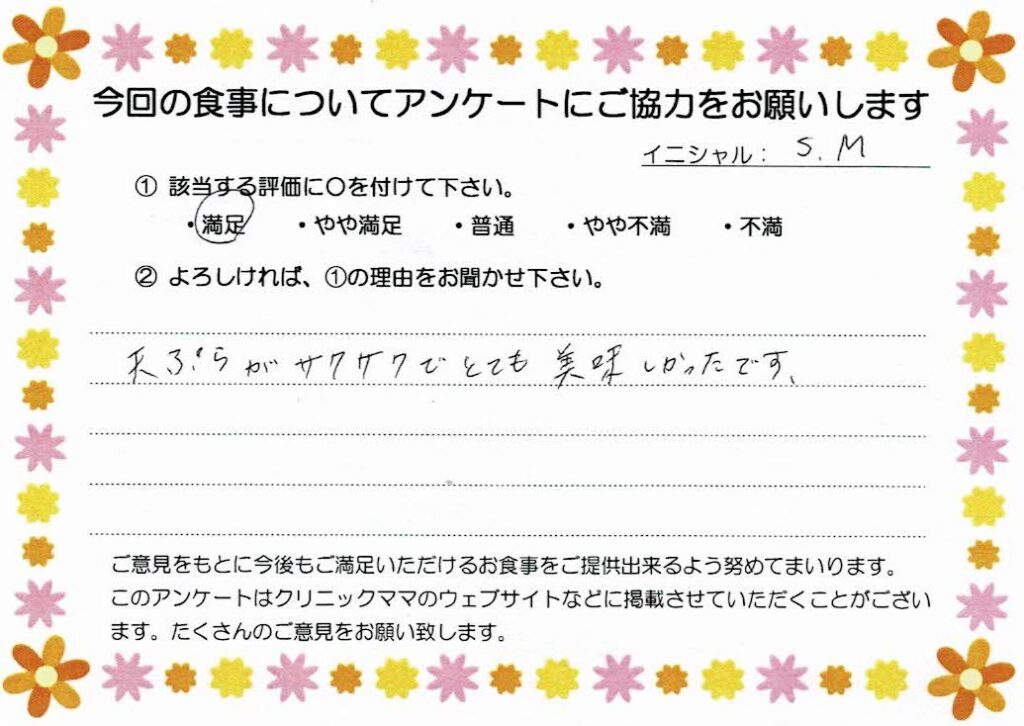 今回の食事についてアンケートにご協力をお願いします
イニシャル： S. M
① 該当する評価に〇を付けて下さい。
・満足 ・やや満足 ・普通 ・やや不満 ・不満
② よろしければ、①の理由をお聞かせ下さい。
天ぷらがサクサクでとても美味しかったです、
ご意見をもとに今後もご満足いただけるお食事をご提供出来るよう努めてまいります。
このアンケートはクリニックママのウェブサイトなどに掲載させていただくことがござい
ます。たくさんのご意見をお願い致します。